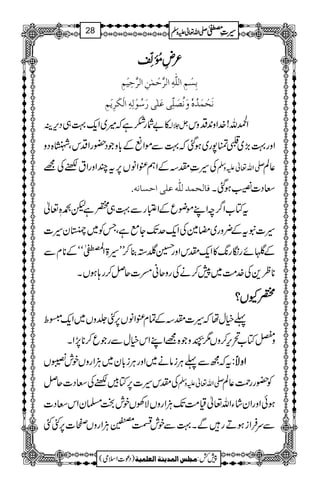 28
سیرتِ مصطفیٰ صلی اللہ تعالیٰ علیہ وسلم
عرضِ مُؤلِّف
بِسْمِ اللّٰهِ الرَّحْمٰنِ الرَّحِيْمِ
نَحْمَدُهٗ وَنُصَلِّىْ عَلٰى رَسُوْلِهِ الْكَرِيْمِ
الحمدللہ! خداوند قدوس جل جلالہ کا بے شمار شکر ہے کہ میری ایک بہت ہی دیرینہ
اور بہت بڑی قلبی تمنا پوری ہوگئی کہ بہت سے موانع کے باوجود حضور اقدس، شہنشاہ دو
عالم صلی اللہ تعالیٰ علیہ وسلم کی سیرت مقدسہ کے اہم عنوانوں پر یہ چند اوراق لکھنے کی مجھے
سعادت نصیب ہو گئی۔ فالحمد للّٰه علی احسانه.
یہ کتاب اگرچہ اپنے موضوع کے اعتبار سے بہت ہی مختصر ہے لیکن بحمدہٖ تعالیٰ
سیرت نبویہ کے ضروری مضامین کی ایک حد تک جامع ہے، جس کو میں چمنستان سیرت
کے گلہائے رنگارنگ کا ایک مقدس اور حسین گلدستہ بنا کر ”سیرۃ المصطفیٰ“ کے نام سے
ناظرین کی خدمت میں پیش کرنے کی روحانی مسرت حاصل کر رہا ہوں۔
مختصر کیوں؟
پہلے خیال تھا کہ سیرت مقدسہ کے تمام عنوانوں پر کئی جلدوں میں ایک مبسوط
و مفصل کتاب تحریر کروں مگر چند وجوہ سے مجھے اپنے اس خیال سے رجوع کرنا پڑا۔
اولاً: یہ کہ مجھ سے پہلے ہر زمانے میں اور ہر زبان میں ہزاروں خوش نصیبوں
کو حضور رحمت عالم صلی اللہ تعالیٰ علیہ وسلم کی مقدس سیرت پر کتابیں لکھنے کی سعادت حاصل
ہوئی اور ان شاء اللہ تعالیٰ قیامت تک ہزاروں لاکھوں خوش بخت مسلمان اس سعادت
سے سرفراز ہوتے رہیں گے۔ بہت سے خوش قسمت مصنفین ہزاروں صفحات پر کئی کئی
پیش کش: مجلس المدینة العلمیة (دعوت اسلامی)